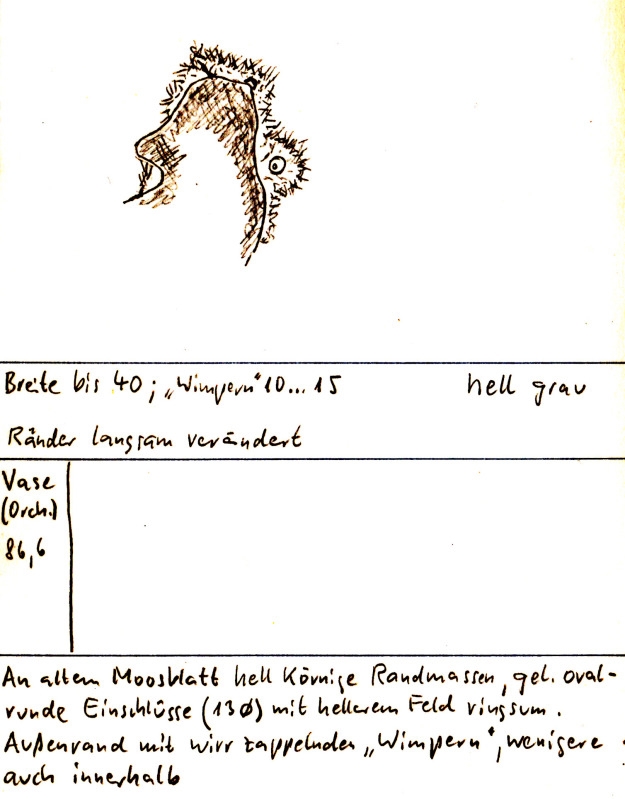 Breite bis 40; „Wimpern" 10...15 hell grau
Ränder langsam verändert
Vase
(Orch.)
86,6
An altem Moosblatt hell Körnige Randmassen, gel. oval-
runde Einschlüsse (13ø) mit hellerem Feld ringsum.
Außenrand mit wirr zappelnden „Wimpern", wenigere
auch innerhalb